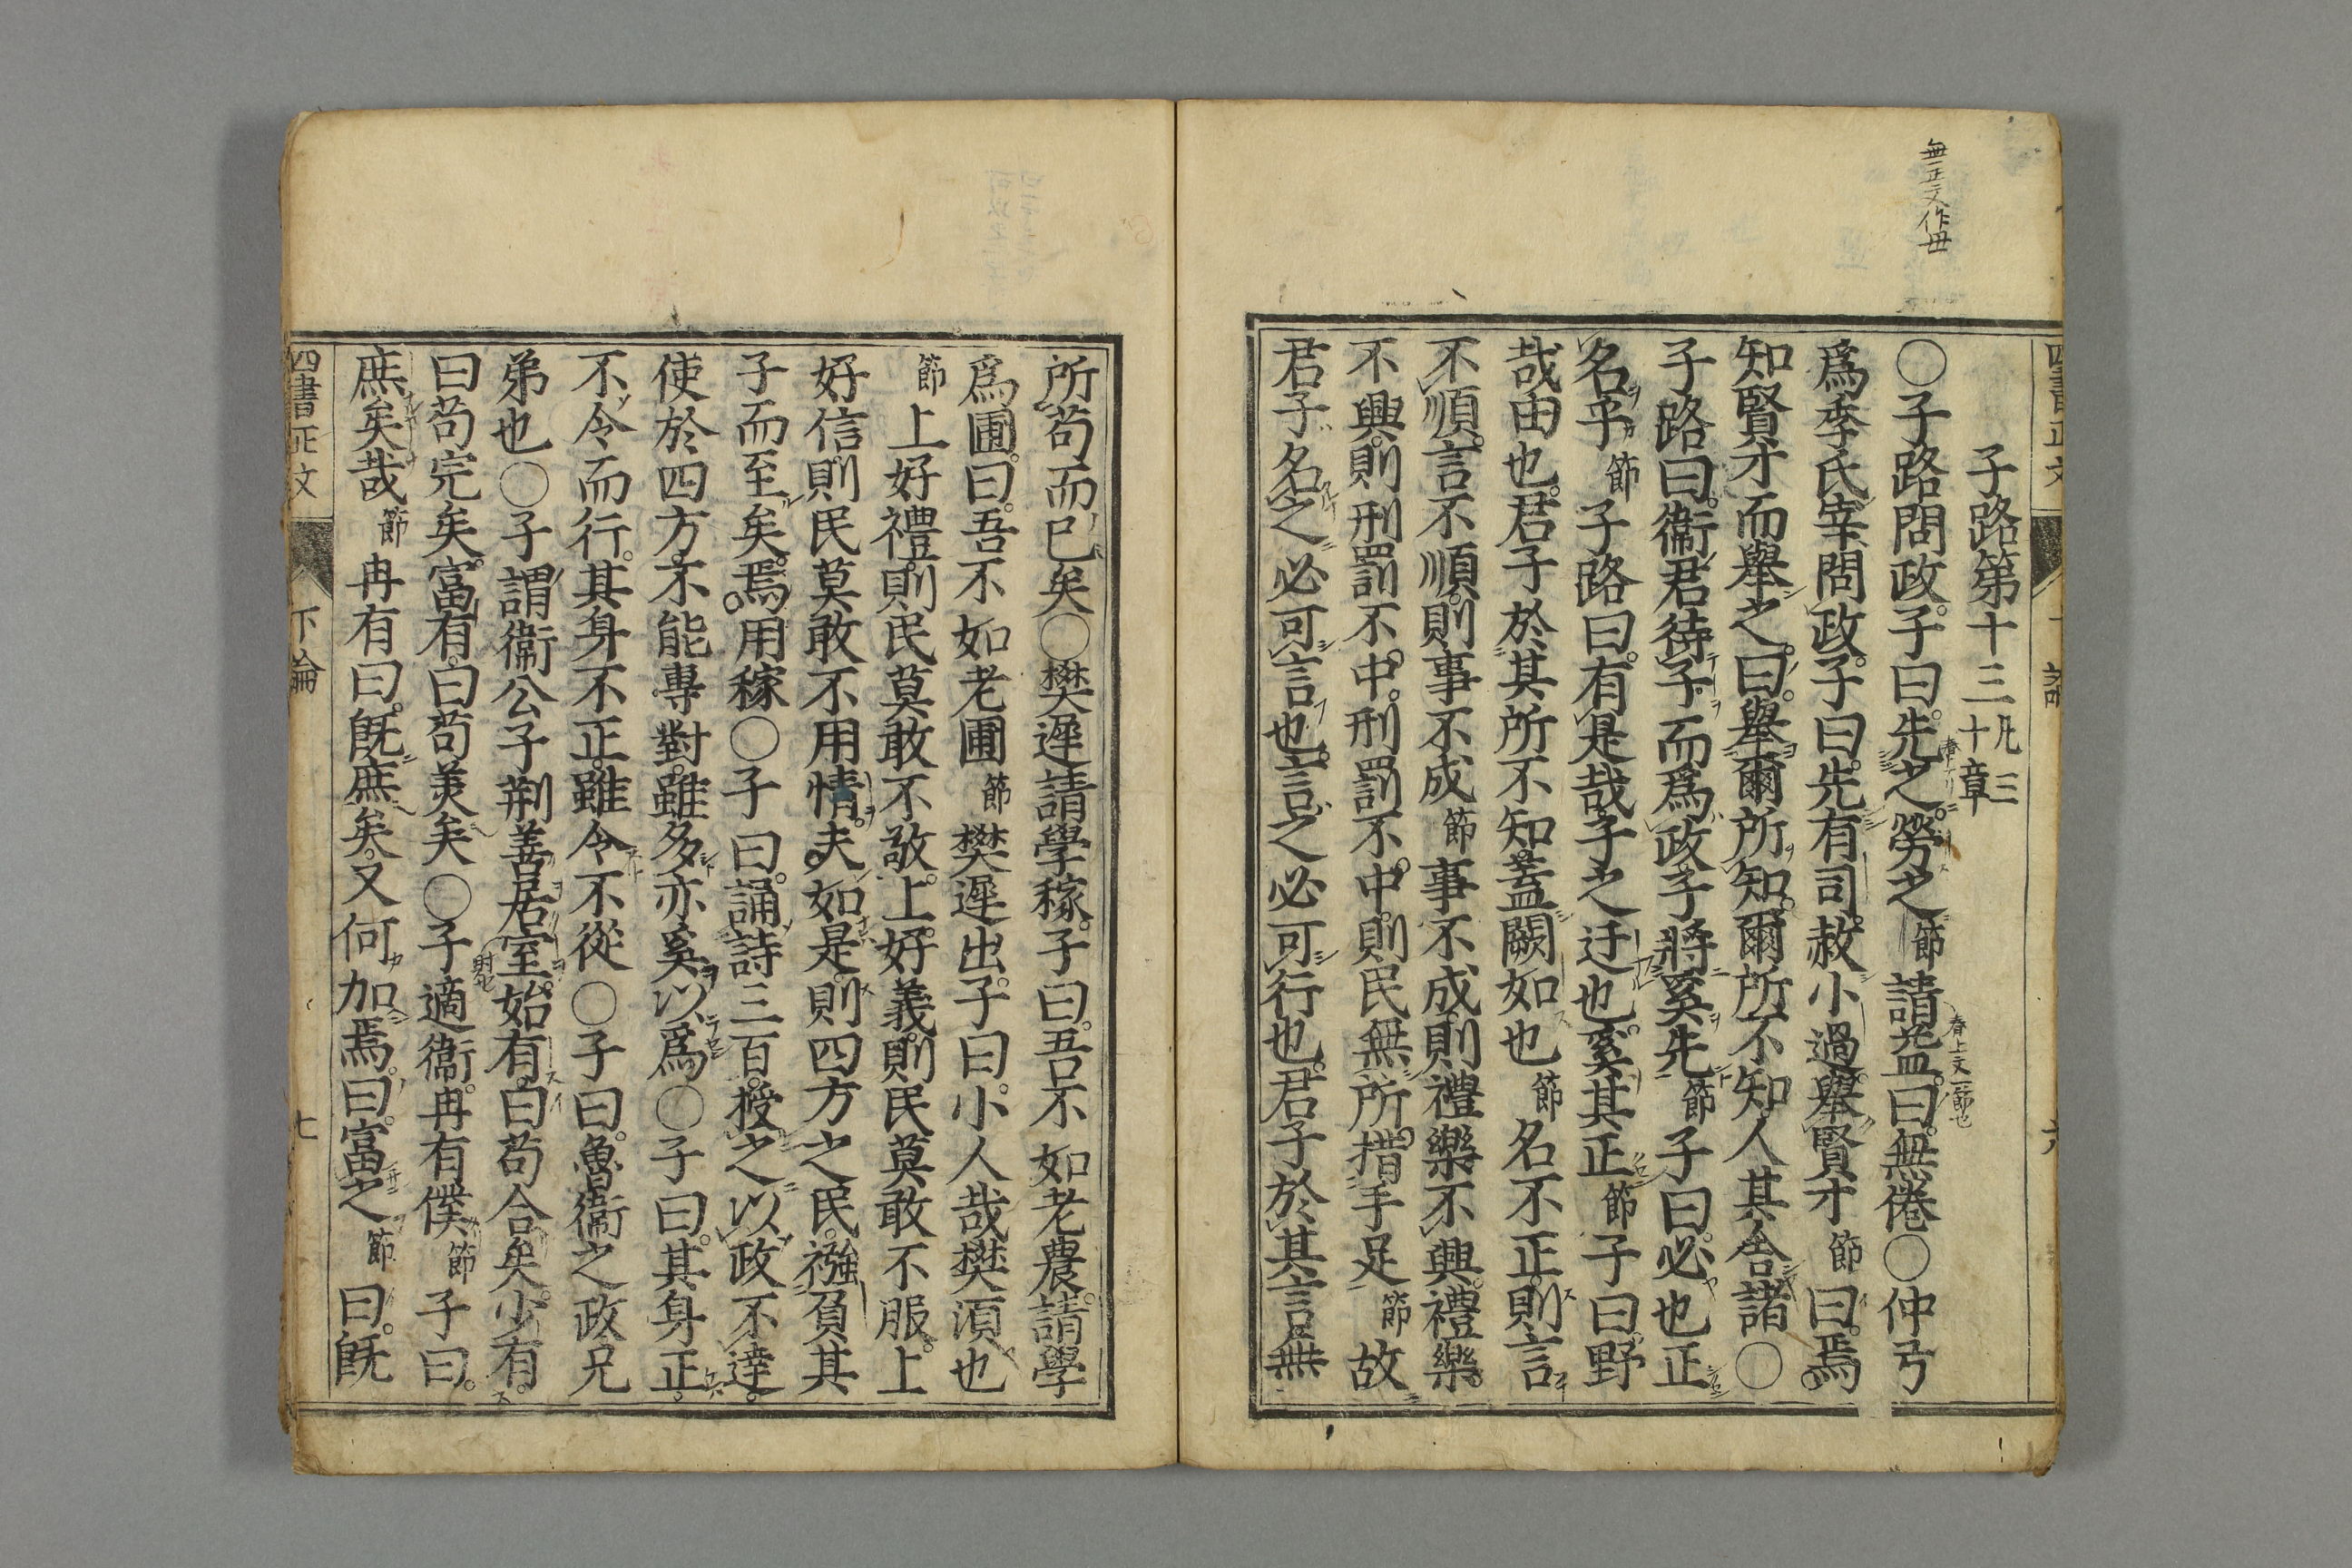 無正文作毋
子路第十三凡三十章
〇子路問政。子曰。先之。勞之節請益。曰。無倦〇仲弓
爲季氏宰。問政。子曰。先有司。赦小過。舉賢才節曰。焉
知賢才而舉之。曰。舉爾所知。爾所不知。人其舍諸〇
子路曰。衞君待子而爲政。子將奚先節子曰。必也正
名乎節子路曰。有是哉。子之迂也。奚其正節子曰。野
哉由也。君子於其所不知。蓋闕如也節名不正。則言
不順。言不順。則事不成節事不成。則禮樂不興。禮樂
不興。則刑罰不中。刑罰不中。則民無所措手足節故
君子名之必可言也。言之必可行也。君子於其言。無
所苟而已矣〇樊遲請學稼。子曰。吾不如老農。請學
爲圃。曰。吾不如老圃節樊遲出。子曰。小人哉樊須也
節上好禮。則民莫敢不敬。上好義。則民莫敢不服。上
好信。則民莫敢不用情。夫如是。則四方之民。襁負其
子而至矣。焉用稼〇子曰。誦詩三百。授之以政。不達。
使於四方。不能專對。雖多亦奚以爲〇子曰。其身正。
不令而行。其身不正。雖令不從〇子曰。魯衞之政。兄
弟也〇子謂衞公子荆。善居室。始有。曰。苟合矣。少有。
曰。苟完矣。富有。曰。苟美矣〇子適衞。冉有僕節子曰。
庶矣哉節冉有曰。既庶矣。又何加焉。曰。富之節曰。既
四書正文 下論 七